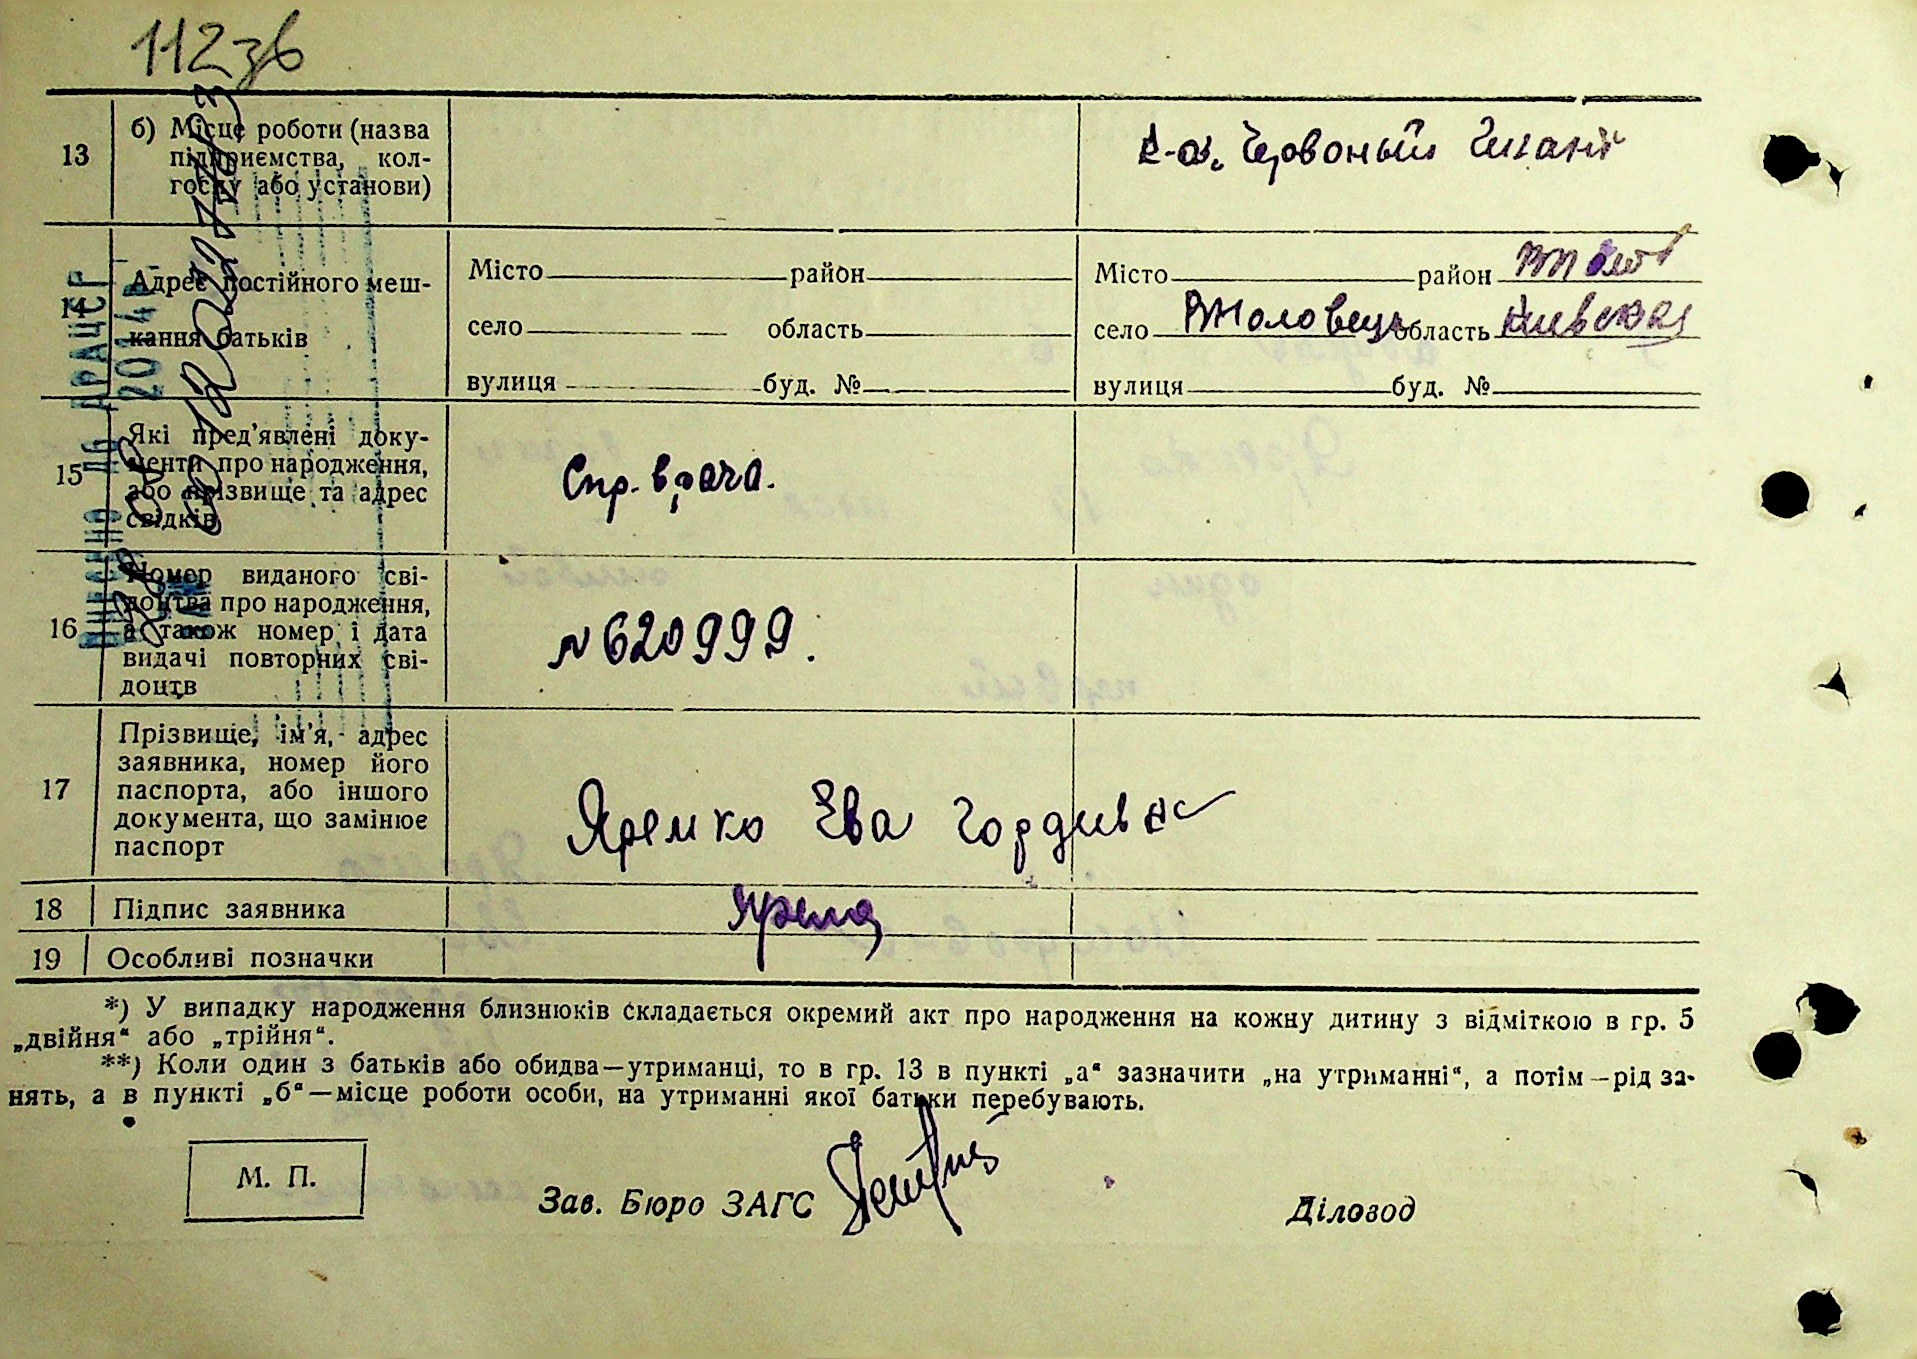 112зв
13 б) Місце роботи (назва
підприємства, кол-
госпу або установи)
к-оз. Червоный Гигант
14 Адрес постійного меш-
кання батьків
Місто район
село область
вулиця буд. №
Місто район
село область Киевская
вулиця буд. №
15 Які пред'явлені доку-
менти про народження,
або прізвище та адрес
свідків
Спр. врача.
16 Номер виданого сві-
доцтва про народження,
а також номер і дата
видачі повторних сві-
доцтв
№620999.
17 Прізвище, ім'я, адрес
заявника, номер його
паспорта, або іншого
документа, що замінює
паспорт
Яремко Ева Гордиевна
18 Підпис заявника
19 Особливі позначки
*) У випадку народження близнюків складається окремий акт про народження на кожну дитину з відміткою в гр. 5
„двійня“ або „трійня“.
**) Коли один з батьків або обидва—утриманці, то в гр. 13 в пункті „а“ зазначити „на утриманні“, а потім—рід за-
нять, а в пункті „б“—місце роботи особи, на утриманні якої батьки перебувають.
М. П.
Зав. Бюро ЗАГС
Діловод